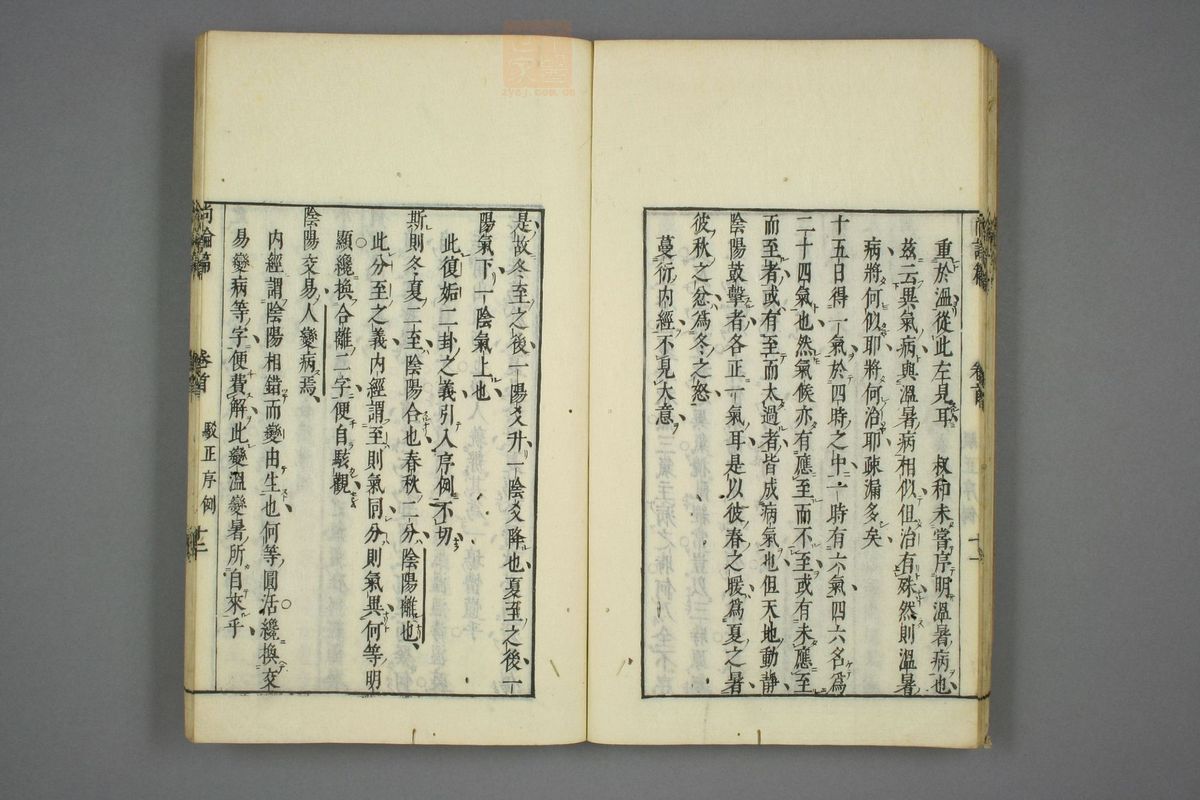 重於溫從此左見耳　叔和未嘗序明溫暑病也
茲云異氣病與溫暑病相似但治有殊然則溫暑
病將何似耶將何治耶疎漏多矣
十五日得一氣於四時之中一時有六氣四六名爲
二十四氣也然氣候亦有應至而不至或有未應至
而至者或有至而太過者皆成病氣也但天地動靜
陰陽鼓擊者各正一氣耳是以彼春之暖爲夏之暑
彼秋之忿爲冬之怒
蔓衍內經不見大意
是故冬至之後一陽爻升一陰爻降也夏至之後一
陽氣下一陰氣上也
此復姤二卦之義引入序例不切
斯則冬夏二至陰陽合也春秋二分陰陽離也
此分至之義內經謂至則氣同分則氣異何等明
顯纔換合離二字便自駭觀
陰陽交易人變病焉
內經謂陰陽相錯而變由生也何等圓活纔換交
易變病等字便費解此變溫變暑所自來乎
尚論篇
卷首
駁正序例
十二